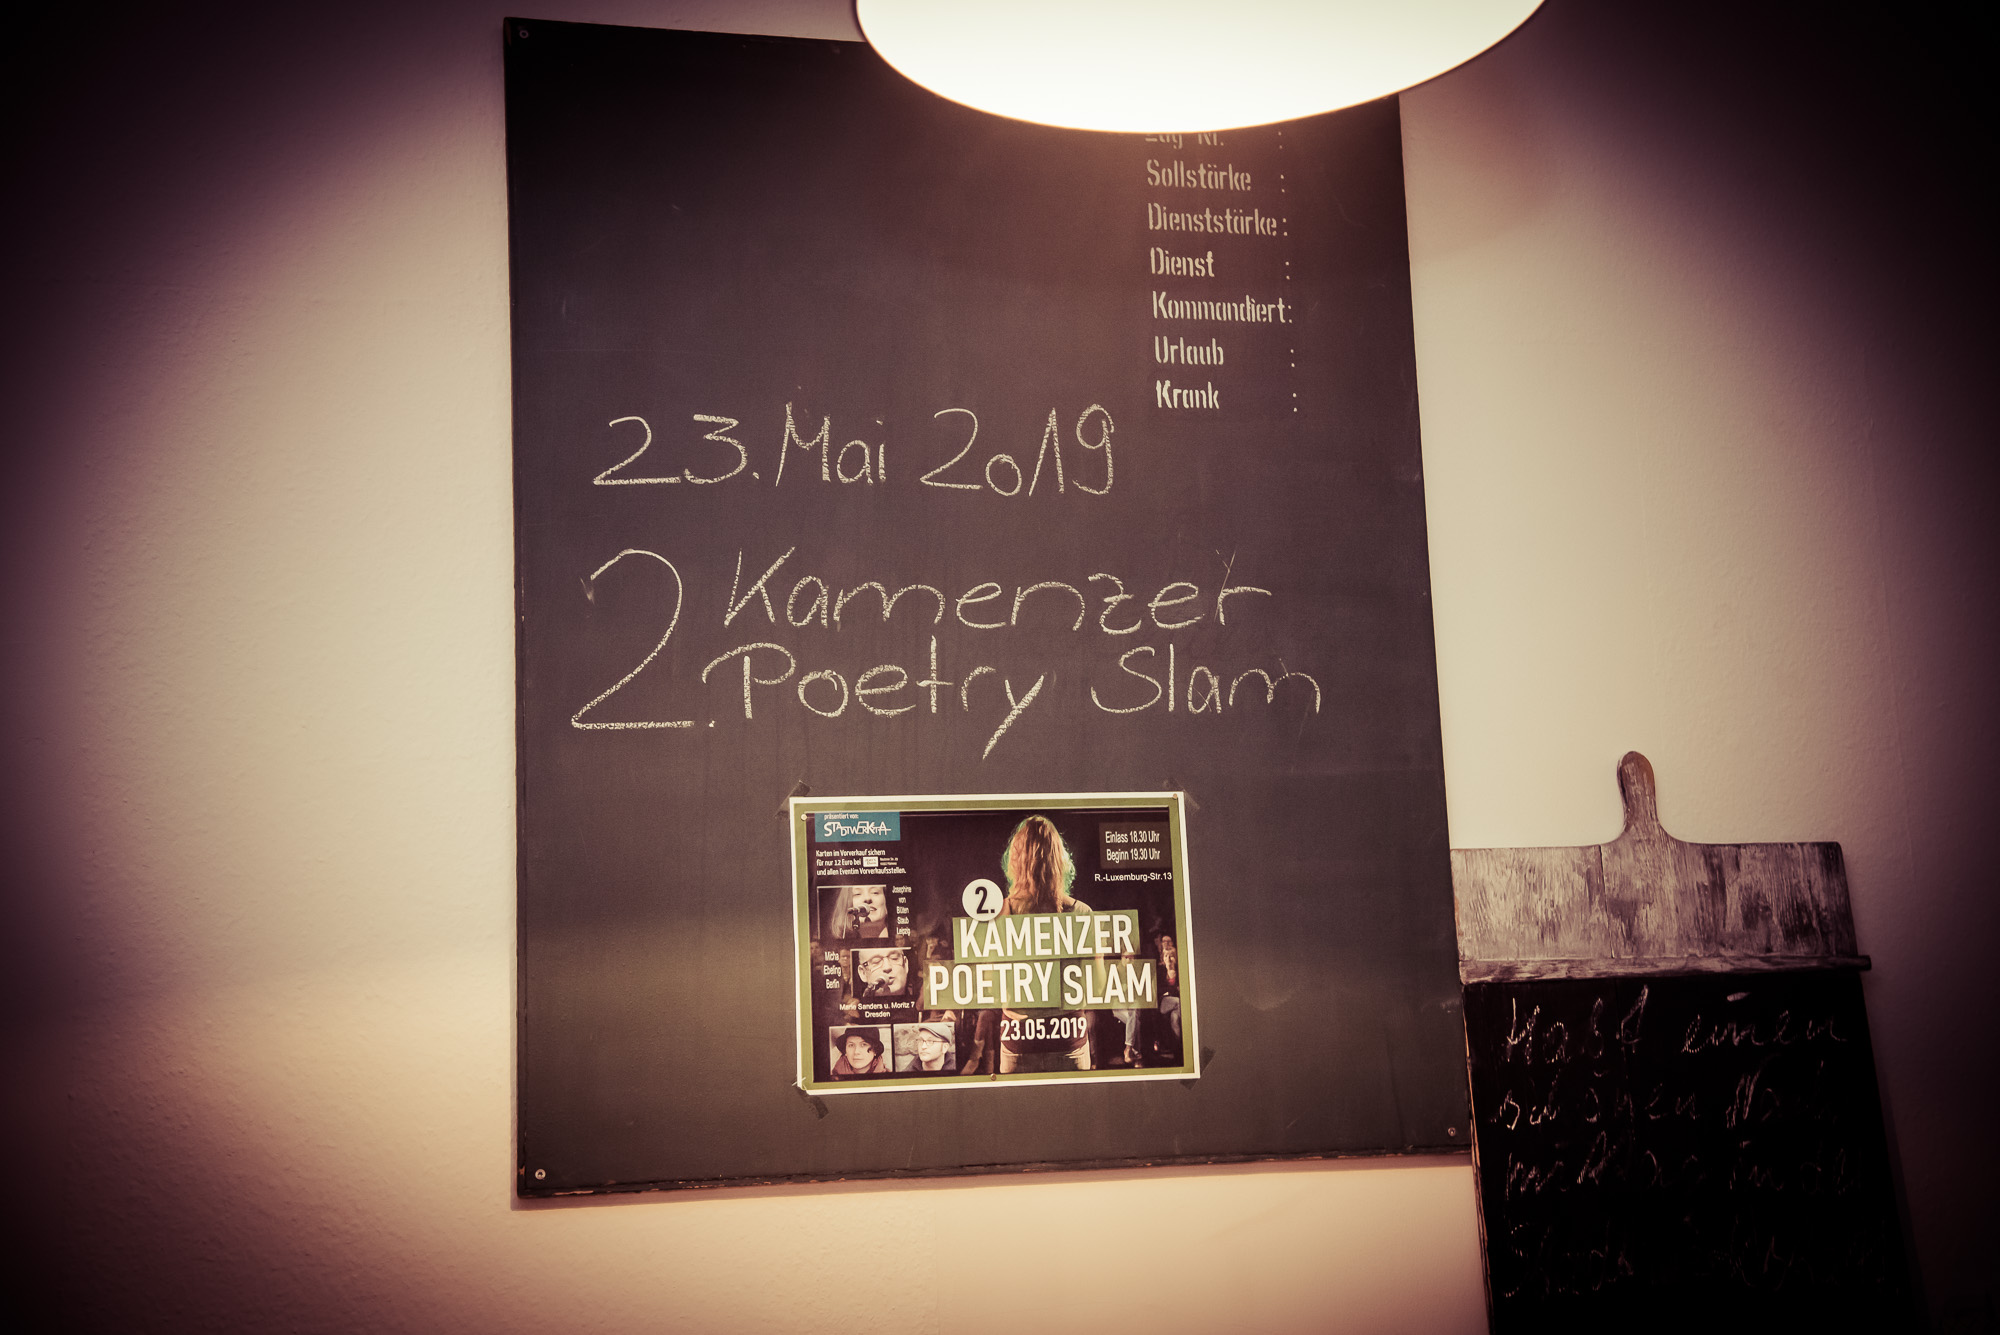 Sollstärke :
Dienststärke :
Dienst :
Kommandiert:
Urlaub :
Krank :
23. Mai 2019
2. Kamenzer
Poetry Slam
präsentiert von:
STADTWERKSTATT
Karten im Vorverkauf sichern
für nur 12 Euro bei
und allen Eventim Vorverkaufsstellen.
Einlass 18.30 Uhr
Beginn 19.30 Uhr
R.-Luxemburg-Str.13
Josephine
von
Blüten
Staub
Leipzig
2.
KAMENZER
POETRY SLAM
23.05.2019
Micha
Ebeling
Berlin
Marie Sanders u. Moritz 7
Dresden
Hast einen